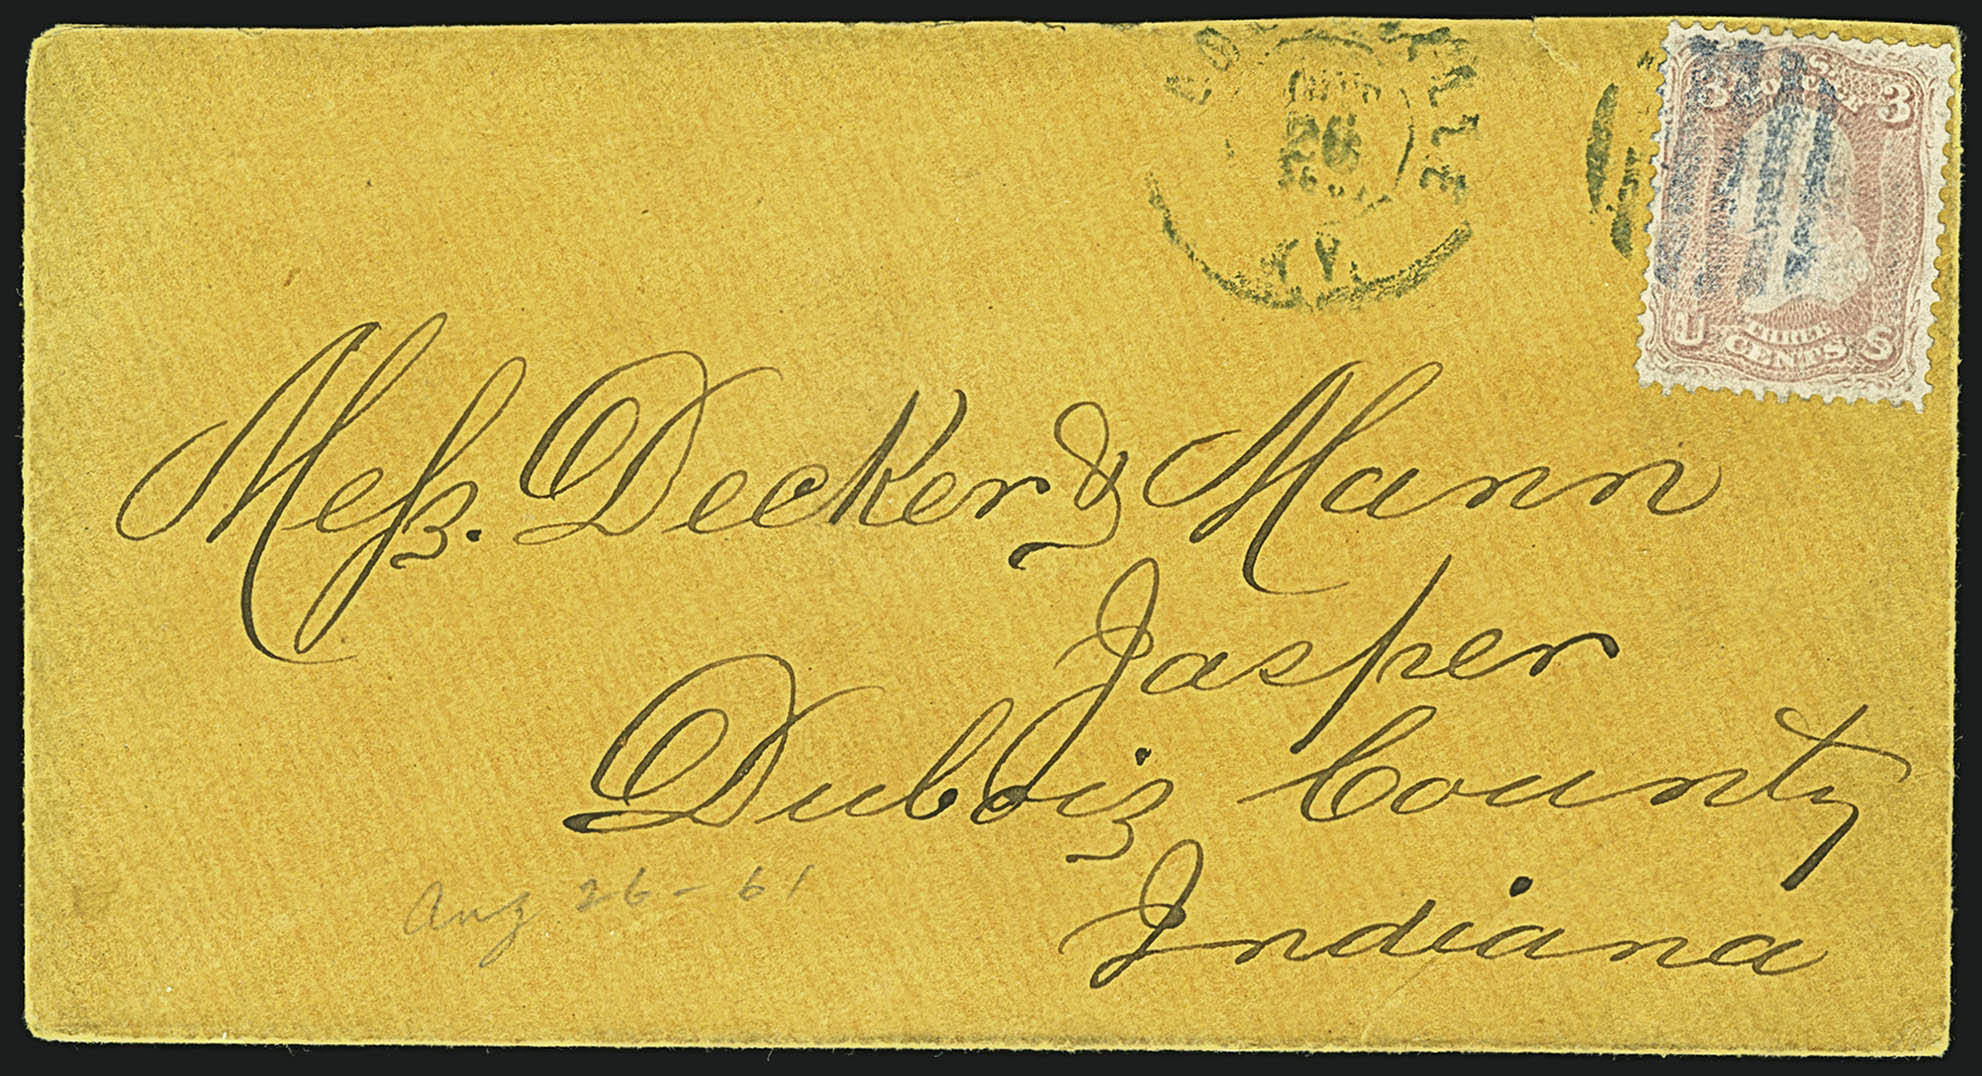 AUG
26
KY.
3 U.S. 3
POSTAGE
U THREE S
CENTS
Meſs. Decker & Mann
Jasper
Duboiz County
Indiana
Aug 26 - 61